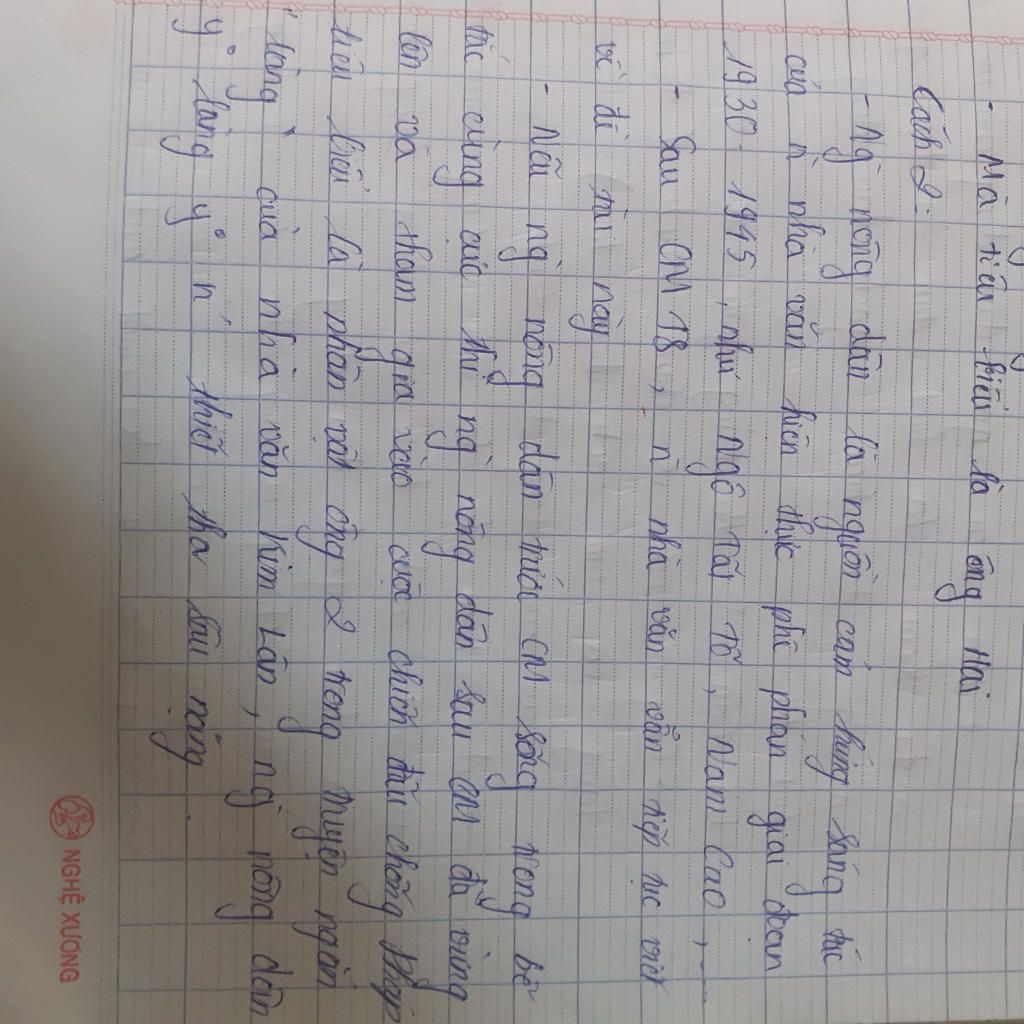 - Mà tiêu biểu là ông Hai
Cách 2:
- Ng` nông dân là nguồn cảm hứng sáng tác
của n` nhà văn hiện thực phê phán giai đoạn
1930 - 1945, như Ngô Tất Tố, Nam Cao, ...
- Sau CM T8, n` nhà văn vẫn tiếp tục viết
về đề tài này
- Nếu ng` nông dân trước CM sống trong bế
tắc cùng cực thì ng` nông dân sau CM đã vùng
lên và tham gia vào cuộc chiến đấu chống Pháp
tiêu biểu là nhân vật ông 2 trong truyện ngắn
"làng" của nhà văn Kim Lân, ng` nông dân
yêu làng yêu n' thiết tha sâu nặng.
NGHỆ XƯƠNG